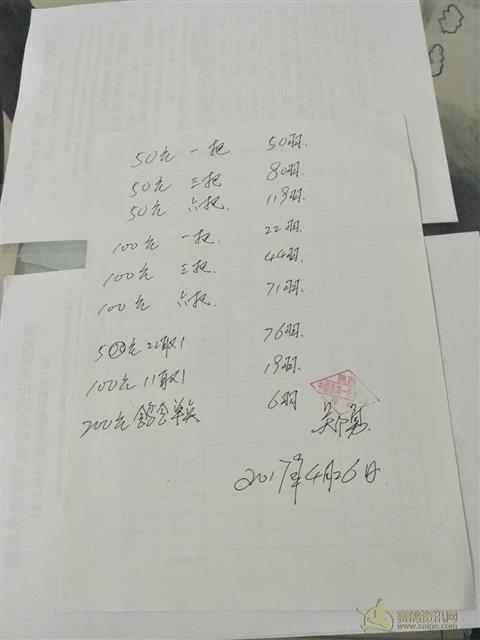 50元 一把 50羽.
50元 三把 80羽.
50元 六把. 119羽.
100元 一把. 22羽.
100元 三把. 44羽.
100元 六把. 71羽.
50元22取1 76羽.
100元11取1 19羽.
200元鸽舍单关 6羽
2017年4月26日.
赛鸽资讯网
www.saige.com